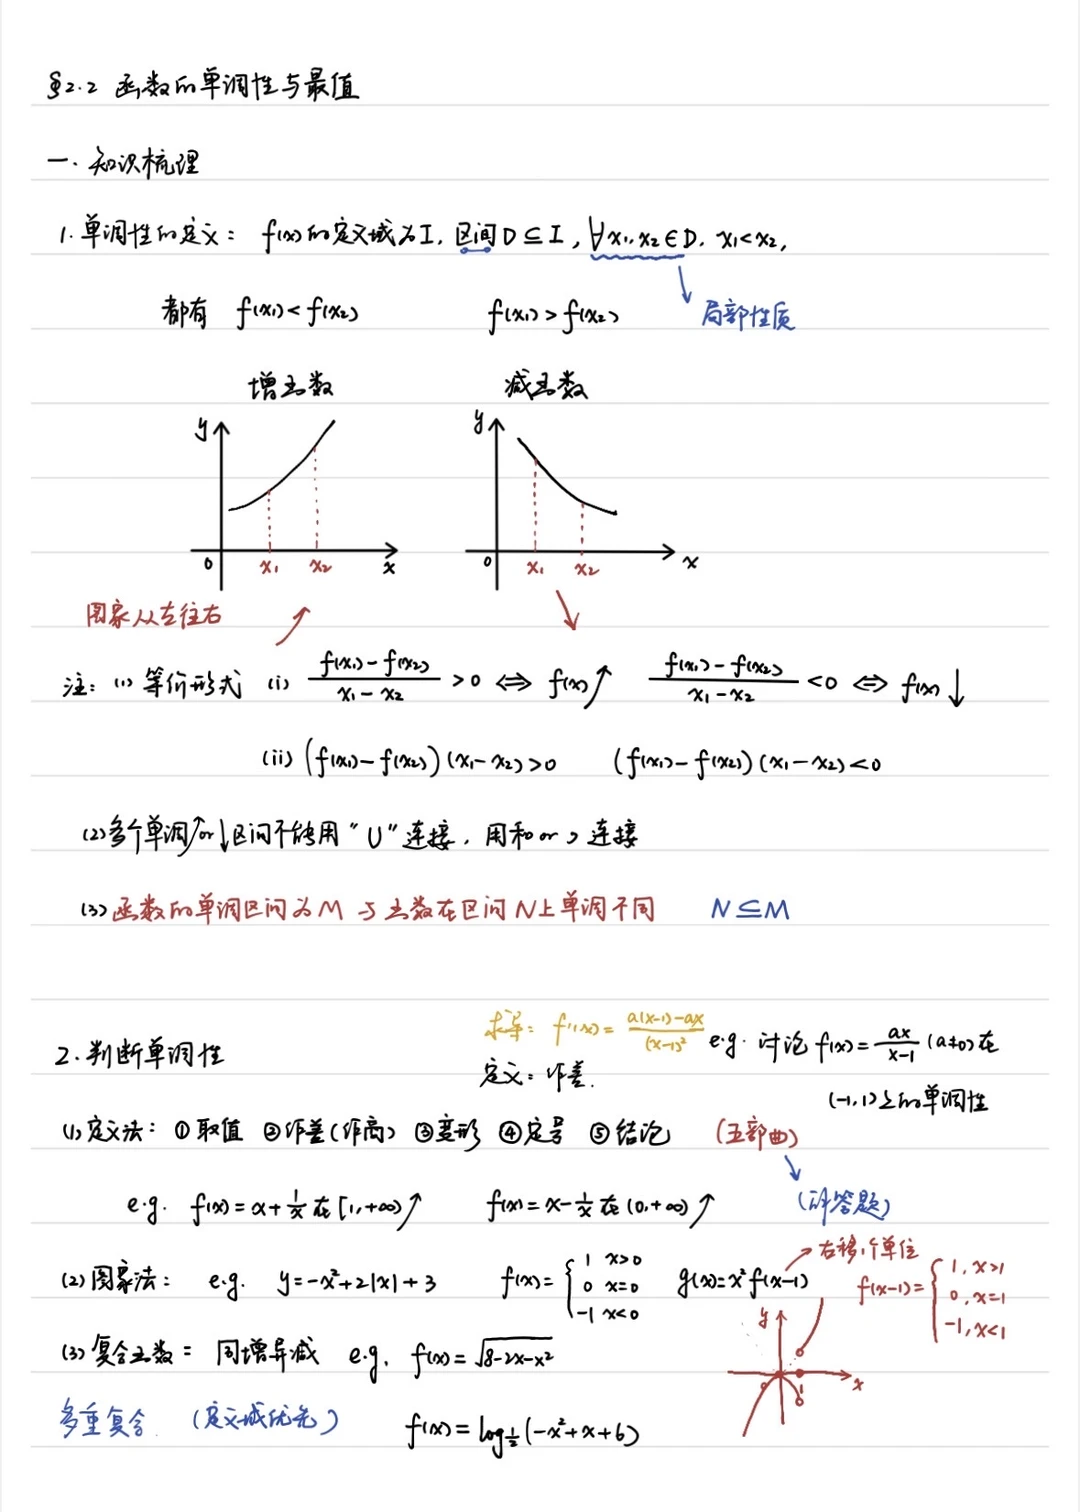 §2.2 函数的单调性与最值
一. 知识梳理
1. 单调性的定义: f(x)的定义域为I, 区间D⊆I, ∀x₁,x₂∈D, x₁<x₂,
都有 f(x₁)<f(x₂) f(x₁)>f(x₂) 局部性质
增函数 减函数
y y
0 x₁ x₂ x 0 x₁ x₂ x
图象从左往右
注: (1) 等价形式 (i) (f(x₁)-f(x₂))/(x₁-x₂) >0 ⇔ f(x)↗ (f(x₁)-f(x₂))/(x₁-x₂) <0 ⇔ f(x)↓
(ii) (f(x₁)-f(x₂))(x₁-x₂)>0 (f(x₁)-f(x₂))(x₁-x₂)<0
(2) 多个单调↗or↓区间不能用"∪"连接, 用和 or , 连接
(3) 函数的单调区间为M 与 函数在区间N上单调不同 N⊆M
求导: f'(x)=(a(x-1)-ax)/(x-1)² e.g. 讨论 f(x)=ax/(x-1) (a≠0)在
2. 判断单调性 定义: 作差.
(-1,1)上的单调性
(1) 定义法: ①取值 ②作差(作商) ③变形 ④定号 ⑤结论 (五部曲)
e.g. f(x)=x+1/x 在[1,+∞)↗ f(x)=x-1/x 在(0,+∞)↗ (解答题)
右移1个单位
(2) 图象法: e.g. y=-x²+2|x|+3 f(x)={1 x>0 0 x=0 -1 x<0 g(x)=x²f(x-1) f(x-1)={1, x>1 0, x=1 -1, x<1
y
(3) 复合函数: 同增异减 e.g. f(x)=√(8-2x-x²)
1 x
多重复合. (定义域优先) f(x)=log_{1/2}(-x²+x+6)